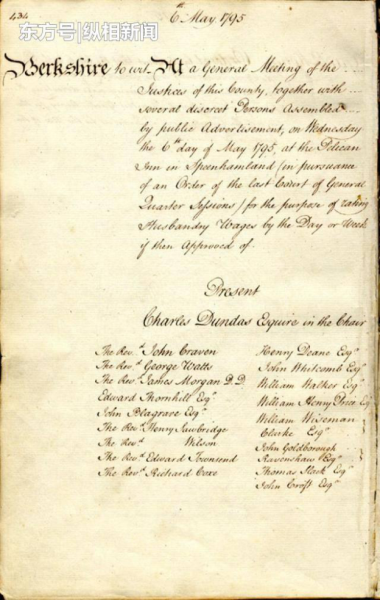 东方号|纵相新闻
434
6th May 1795
Berkshire to wit At a General Meeting of the
Justices of this County, together with
several discreet Persons Assembled
by public Advertisement, on Wednesday
the 6th day of May 1795, at the Pelican
Inn in Speenhamland (in pursuance
of an Order of the last Court of General
Quarter Sessions) for the purpose of rating
Husbandry Wages by the Day or Week
if then Approved of.
Present
Charles Dundas Esquire in the Chair
The Revd. John Craven
The Revd. George Watts
The Revd. James Morgan D.D.
Edward Thornhill Esqr.
John Blagrave Esqr.
The Revd. Henry Sawbridge
The Revd. Wilson
The Revd. Edward Townsend
The Revd. Richard Coxe
Henry Deane Esqr.
John Whitcomb Esqr.
William Walker Esqr.
William Henry Price Esqr.
William Wiseman
Clarke Esqr.
John Goldborough
Ravenshaw Esqr.
Thomas Slack Esqr.
John Croft Esqr.